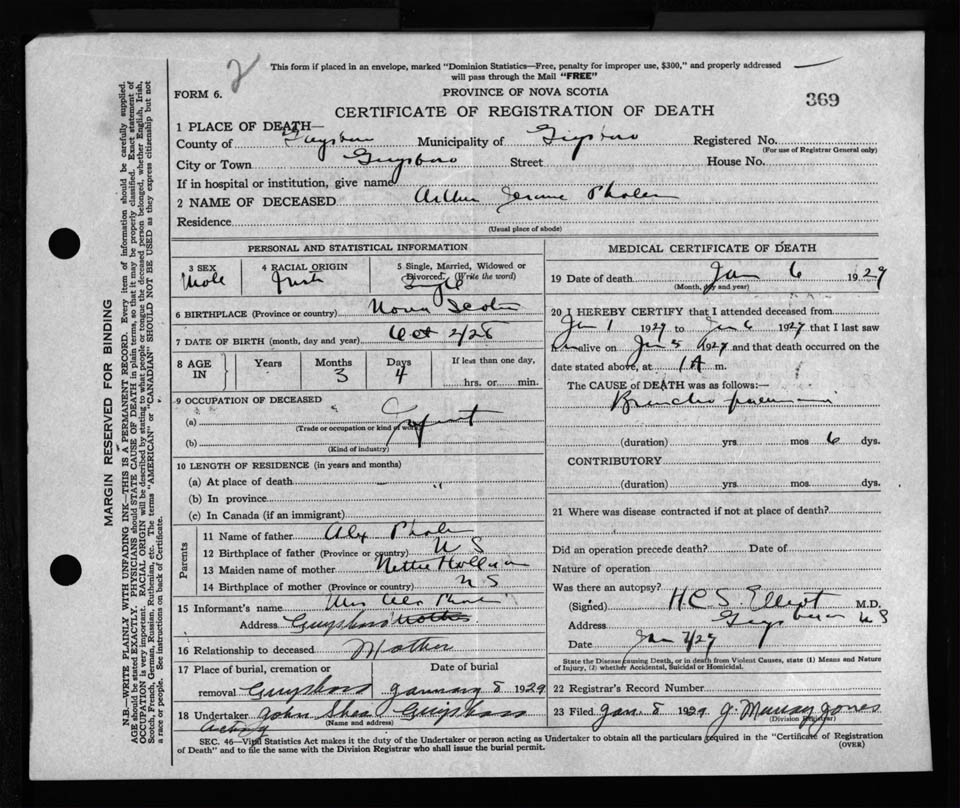 2
This form if placed in an envelope, marked "Dominion Statistics—Free, penalty for improper use, $300," and properly addressed
will pass through the Mail "FREE"
FORM 6.
PROVINCE OF NOVA SCOTIA
369
CERTIFICATE OF REGISTRATION OF DEATH
1 PLACE OF DEATH—
County of Guysboro Municipality of Guysboro Registered No.
(For use of Registrar General only)
City or Town Guysboro Street House No.
If in hospital or institution, give name
2 NAME OF DECEASED Arthur Jerome Phalen
Residence
(Usual place of abode)
PERSONAL AND STATISTICAL INFORMATION
3 SEX
Male
4 RACIAL ORIGIN
Irish
5 Single, Married, Widowed or
Divorced. (Write the word)
Single
6 BIRTHPLACE (Province or country) Nova Scotia
7 DATE OF BIRTH (month, day and year) Oct 2/28
8 AGE IN
Years
Months
3
Days
4
If less than one day,
hrs. or min.
9 OCCUPATION OF DECEASED
(a) Infant
(Trade or occupation or kind of work)
(b)
(Kind of industry)
10 LENGTH OF RESIDENCE (in years and months)
(a) At place of death
(b) In province
(c) In Canada (if an immigrant)
Parents
11 Name of father Alex Phalen
12 Birthplace of father (Province or country) N S
13 Maiden name of mother Nettie
14 Birthplace of mother (Province or country) N S
15 Informant's name Mrs Alex Phalen
Address Guysboro Mother
16 Relationship to deceased Mother
17 Place of burial, cremation or
removal Guysboro
Date of burial
January 8 1929
18 Undertaker John Shea Guysboro
(Name and address)
Acting
MEDICAL CERTIFICATE OF DEATH
19 Date of death Jan 6 1929
(Month, day and year)
20 I HEREBY CERTIFY that I attended deceased from
Jan 1 1929 to Jan 6 1929 that I last saw
him alive on Jan 5 1929 and that death occurred on the
date stated above, at 1 A m.
The CAUSE of DEATH was as follows:—
Broncho pneumonia
(duration) yrs. mos 6 dys.
CONTRIBUTORY
(duration) yrs. mos dys.
21 Where was disease contracted if not at place of death?
Did an operation precede death? Date of
Nature of operation
Was there an autopsy?
(Signed) H C S Elliot M.D.
Address Guysboro N S
Date Jan 7/29
State the Disease causing Death, or in death from Violent Causes, state (1) Means and Nature
of Injury, (2) whether Accidental, Suicidal or Homicidal.
22 Registrar's Record Number
23 Filed Jan. 8 1929 J. Murray Jones
(Division Registrar)
SEC. 46—Vital Statistics Act makes it the duty of the Undertaker or person acting as Undertaker to obtain all the particulars required in the "Certificate of Registration
of Death" and to file the same with the Division Registrar who shall issue the burial permit.
(OVER)
MARGIN RESERVED FOR BINDING
N.B.—WRITE PLAINLY WITH UNFADING INK—THIS IS A PERMANENT RECORD. Every item of information should be carefully supplied.
AGE should be stated EXACTLY. PHYSICIANS should STATE CAUSE OF DEATH in plain terms, so that it may be properly classified. Exact statement of
OCCUPATION is very important. RACIAL ORIGIN will be described by stating to what people or tongue the deceased person belonged, whether English, Irish,
Scotch, French, German, Russian, Ruthenian, etc. The terms "AMERICAN" or "CANADIAN" SHOULD NOT BE USED as they express citizenship but not
a race or people. See instructions on back of Certificate.